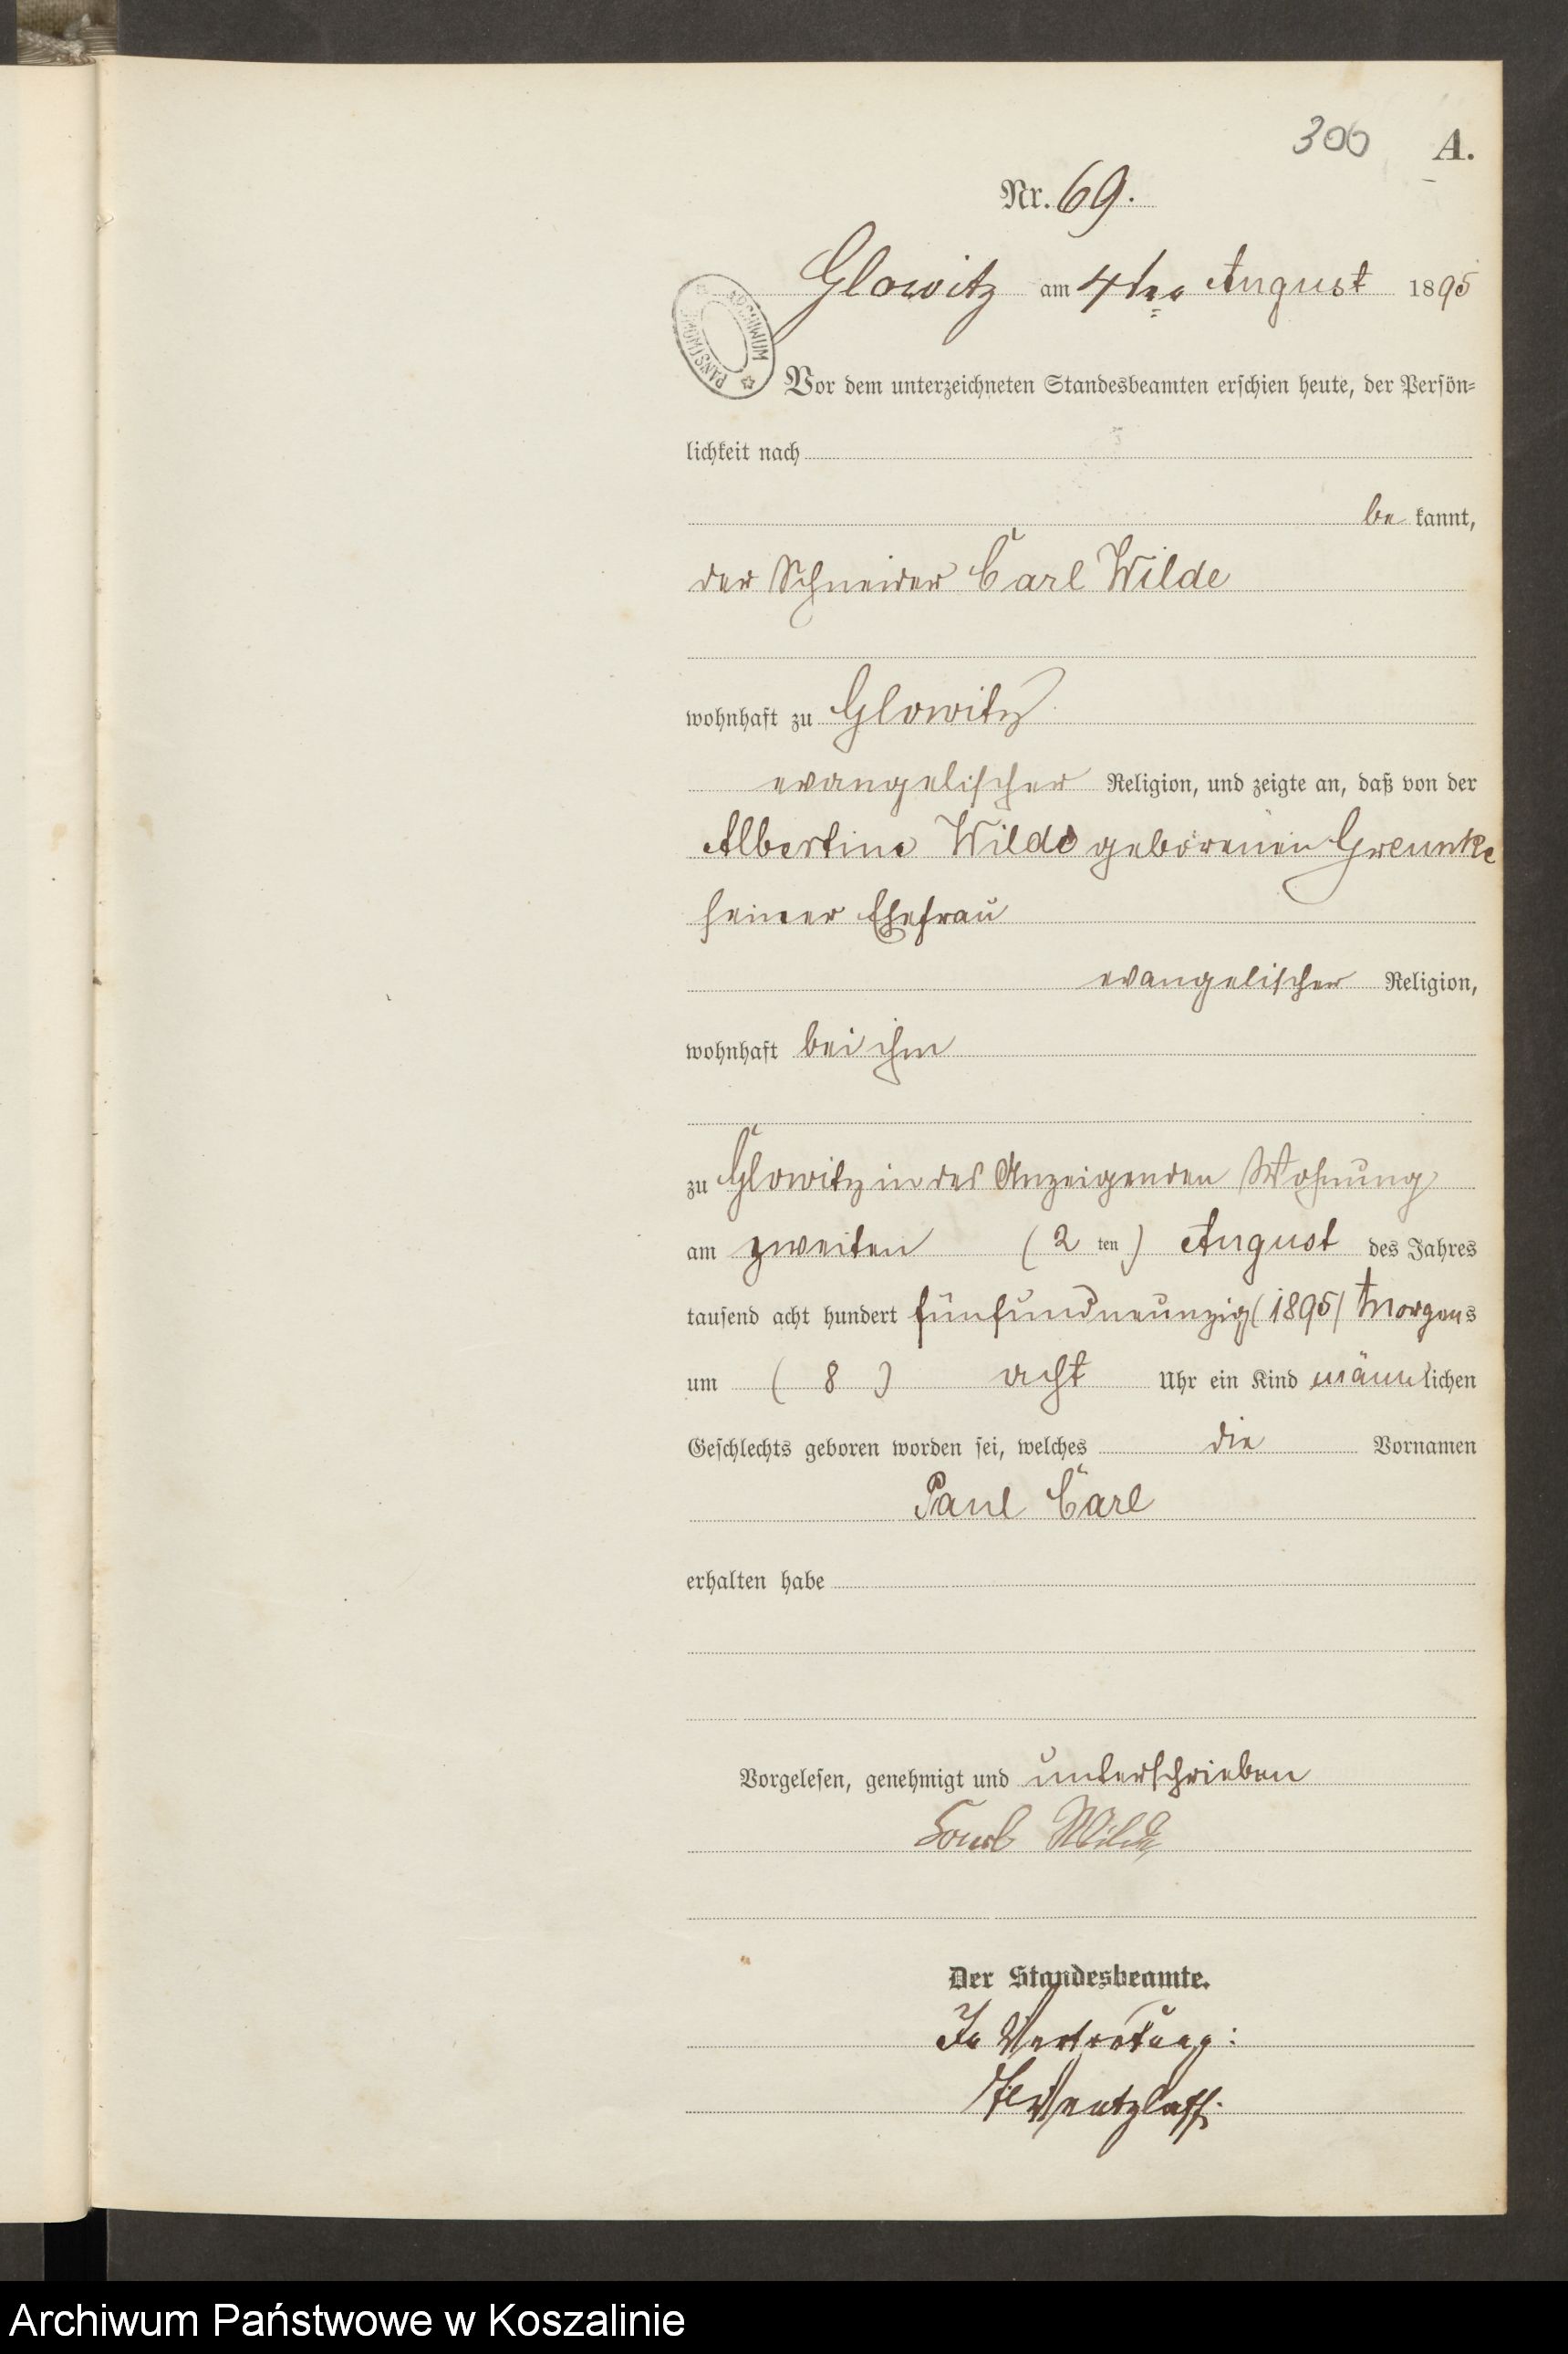 300 A.
Nr. 69.
Glowitz am 4ten August 1895
ARCHIWUM PAŃSTWOWE
Vor dem unterzeichneten Standesbeamten erschien heute, der Persön-
lichkeit nach
be kannt,
der Schneider Carl Wilde
wohnhaft zu Glowitz
evangelischer Religion, und zeigte an, daß von der
Albertine Wilde geborenen Greunke
seiner Ehefrau
evangelischer Religion,
wohnhaft bei ihm
zu Glowitz in des Anzeigenden Wohnung
am zweiten (2 ten) August des Jahres
tausend acht hundert fünfundneunzig (1895) Morgens
um (8) acht Uhr ein Kind männlichen
Geschlechts geboren worden sei, welches die Vornamen
Paul Carl
erhalten habe
Vorgelesen, genehmigt und unterschrieben
Carl Wilde
Der Standesbeamte.
In Vertretung:
Wentzlaff.
Archiwum Państwowe w Koszalinie